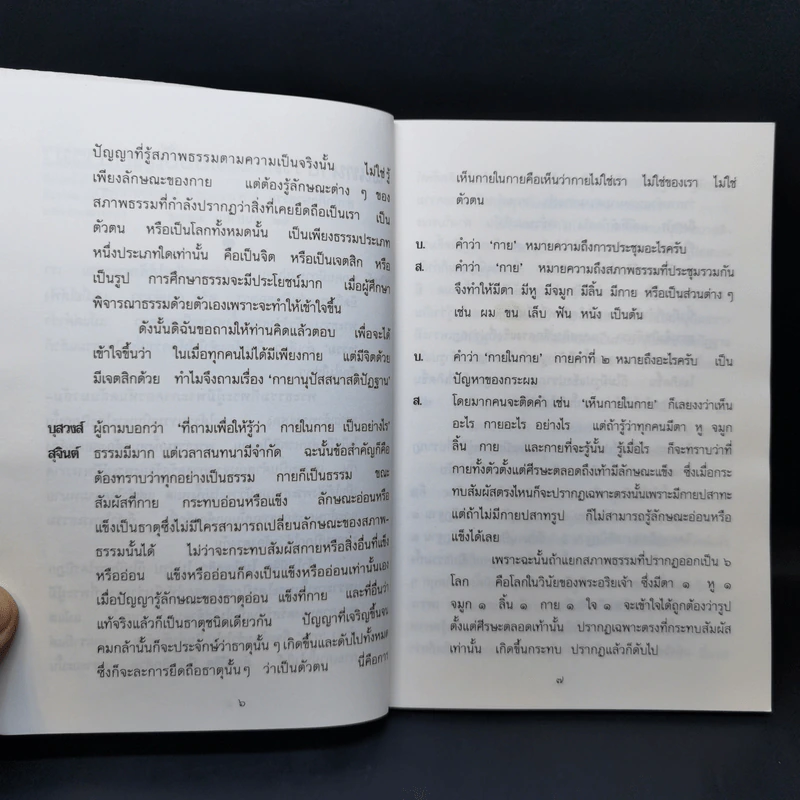 ปัญญาที่รู้สภาพธรรมตามความเป็นจริงนั้น ไม่ใช่รู้
เพียงลักษณะของกาย แต่ต้องรู้ลักษณะต่าง ๆ ของ
สภาพธรรมที่กำลังปรากฏว่าสิ่งที่เคยยึดถือเป็นเรา เป็น
ตัวตน หรือเป็นโลกทั้งหมดนั้น เป็นเพียงธรรมประเภท
หนึ่งประเภทใดเท่านั้น คือเป็นจิต หรือเป็นเจตสิก หรือ
เป็นรูป การศึกษาธรรมจะมีประโยชน์มาก เมื่อผู้ศึกษา
พิจารณาธรรมด้วยตัวเองเพราะจะทำให้เข้าใจขึ้น
ดังนั้นดิฉันขอถามให้ท่านคิดแล้วตอบ เพื่อจะได้
เข้าใจขึ้นว่า ในเมื่อทุกคนไม่ได้มีเพียงกาย แต่มีจิตด้วย
มีเจตสิกด้วย ทำไมจึงถามเรื่อง ‘กายานุปัสสนาสติปัฏฐาน’
บุสวงส์ ผู้ถามบอกว่า ‘ที่ถามเพื่อให้รู้ว่า กายในกาย เป็นอย่างไร’
สุจินต์ ธรรมมีมาก แต่เวลาสนทนามีจำกัด ฉะนั้นข้อสำคัญก็คือ
ต้องทราบว่าทุกอย่างเป็นธรรม กายก็เป็นธรรม ขณะ
สัมผัสที่กาย กระทบอ่อนหรือแข็ง ลักษณะอ่อนหรือ
แข็งเป็นธาตุซึ่งไม่มีใครสามารถเปลี่ยนลักษณะของสภาพ-
ธรรมนั้นได้ ไม่ว่าจะกระทบสัมผัสกายหรือสิ่งอื่นที่แข็ง
หรืออ่อน แข็งหรืออ่อนก็คงเป็นแข็งหรืออ่อนเท่านั้นเอง
เมื่อปัญญารู้ลักษณะของธาตุอ่อน แข็งที่กาย และที่อื่นว่า
แท้จริงแล้วก็เป็นธาตุชนิดเดียวกัน ปัญญาที่เจริญขึ้นจน
คมกล้านั้นก็จะประจักษ์ว่าธาตุนั้น ๆ เกิดขึ้นและดับไปทั้งหมด
ซึ่งก็จะละการยึดถือธาตุนั้น ๆ ว่าเป็นตัวตน นี่คือการ
๖
เห็นกายในกายคือเห็นว่ากายไม่ใช่เรา ไม่ใช่ของเรา ไม่ใช่
ตัวตน
บ. คำว่า ‘กาย’ หมายความถึงการประชุมอะไรครับ
ส. คำว่า ‘กาย’ หมายความถึงสภาพธรรมที่ประชุมรวมกัน
จึงทำให้มีตา มีหู มีจมูก มีลิ้น มีกาย หรือเป็นส่วนต่าง ๆ
เช่น ผม ขน เล็บ ฟัน หนัง เป็นต้น
บ. คำว่า ‘กายในกาย’ กายคำที่ ๒ หมายถึงอะไรครับ เป็น
ปัญหาของกระผม
ส. โดยมากคนจะติดคำ เช่น ‘เห็นกายในกาย’ ก็เลยงงว่าเห็น
อะไร กายอะไร อย่างไร แต่ถ้ารู้ว่าทุกคนมีตา หู จมูก
ลิ้น กาย และกายที่จะรู้นั้น รู้เมื่อไร ก็จะทราบว่าที่
กายทั้งตัวตั้งแต่ศีรษะตลอดถึงเท้ามีลักษณะแข็ง ซึ่งเมื่อกระ
ทบสัมผัสตรงไหนก็จะปรากฏเฉพาะตรงนั้นเพราะมีกายปสาทะ
แต่ถ้าไม่มีกายปสาทรูป ก็ไม่สามารถรู้ลักษณะอ่อนหรือ
แข็งได้เลย
เพราะฉะนั้นถ้าแยกสภาพธรรมที่ปรากฏออกเป็น ๖
โลก คือโลกในวินัยของพระอริยเจ้า ซึ่งมีตา ๑ หู ๑
จมูก ๑ ลิ้น ๑ กาย ๑ ใจ ๑ จะเข้าใจได้ถูกต้องว่ารูป
ตั้งแต่ศีรษะตลอดเท้านั้น ปรากฏเฉพาะตรงที่กระทบสัมผัส
เท่านั้น เกิดขึ้นกระทบ ปรากฏแล้วก็ดับไป
๗